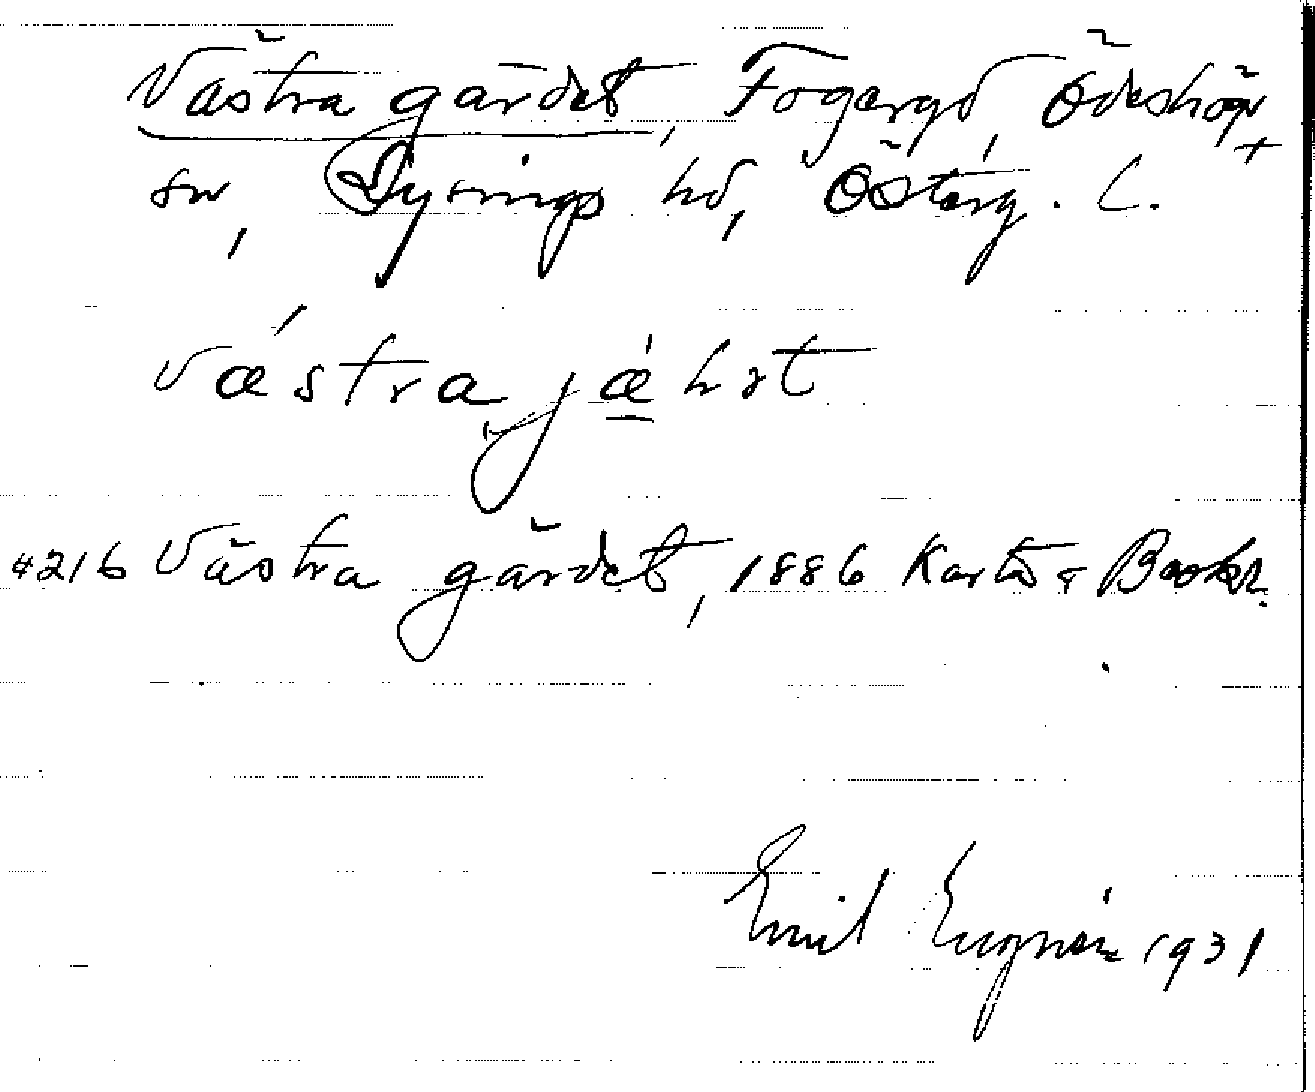 Västra gärdet, Fogeryd, Ödeshögs
sn, Lysings hd, Österg. l.
västra jæ̲hzt
4216 Västra gärdet, 1886 Karta & Beskr.
Emil 1931